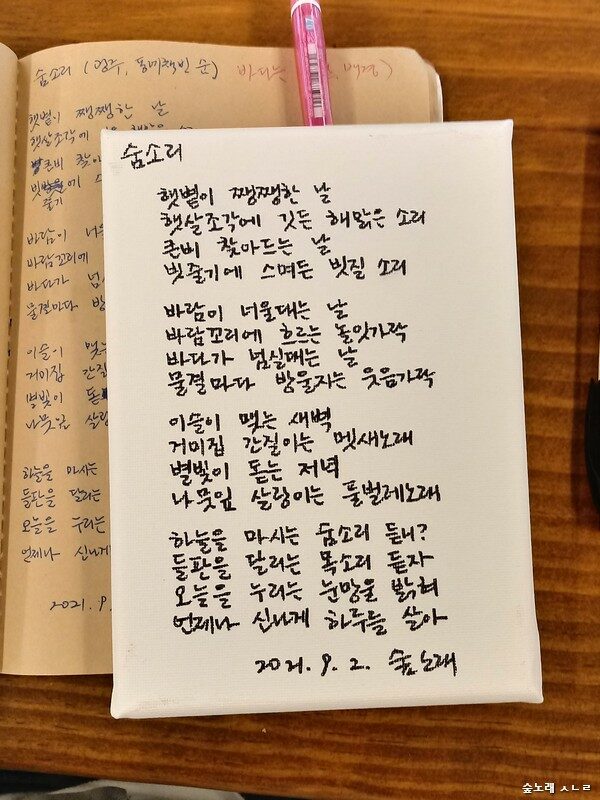 숨소리
바다는
햇볕이 쨍쨍한 날
햇살조각에
큰비
빗
줄기
바람이
바람꼬리에
바다가
물결마다
이슬이
거미집
별빛이
나뭇잎
하늘을 마시는
들판을 달리는
오늘을 누리는
언제나 신나게
2021. 9.
숨소리
햇볕이 쨍쨍한 날
햇살조각에 깃든 해맑은 소리
큰비 찾아드는 날
빗줄기에 스며든 빗질 소리
바람이 너울대는 날
바람꼬리에 흐르는 놀잇가락
바다가 넘실대는 날
물결마다 방울지는 웃음가락
이슬이 맺는 새벽
거미집 간질이는 멧새노래
별빛이 돋는 저녁
나뭇잎 살랑이는 풀벌레노래
하늘을 마시는 숨소리 듣니?
들판을 달리는 목소리 듣자
오늘을 누리는 눈망울 밝혀
언제나 신나게 하루를 살아
2021. 9. 2. 숲노래
숲노래 ㅅㄴㄹ